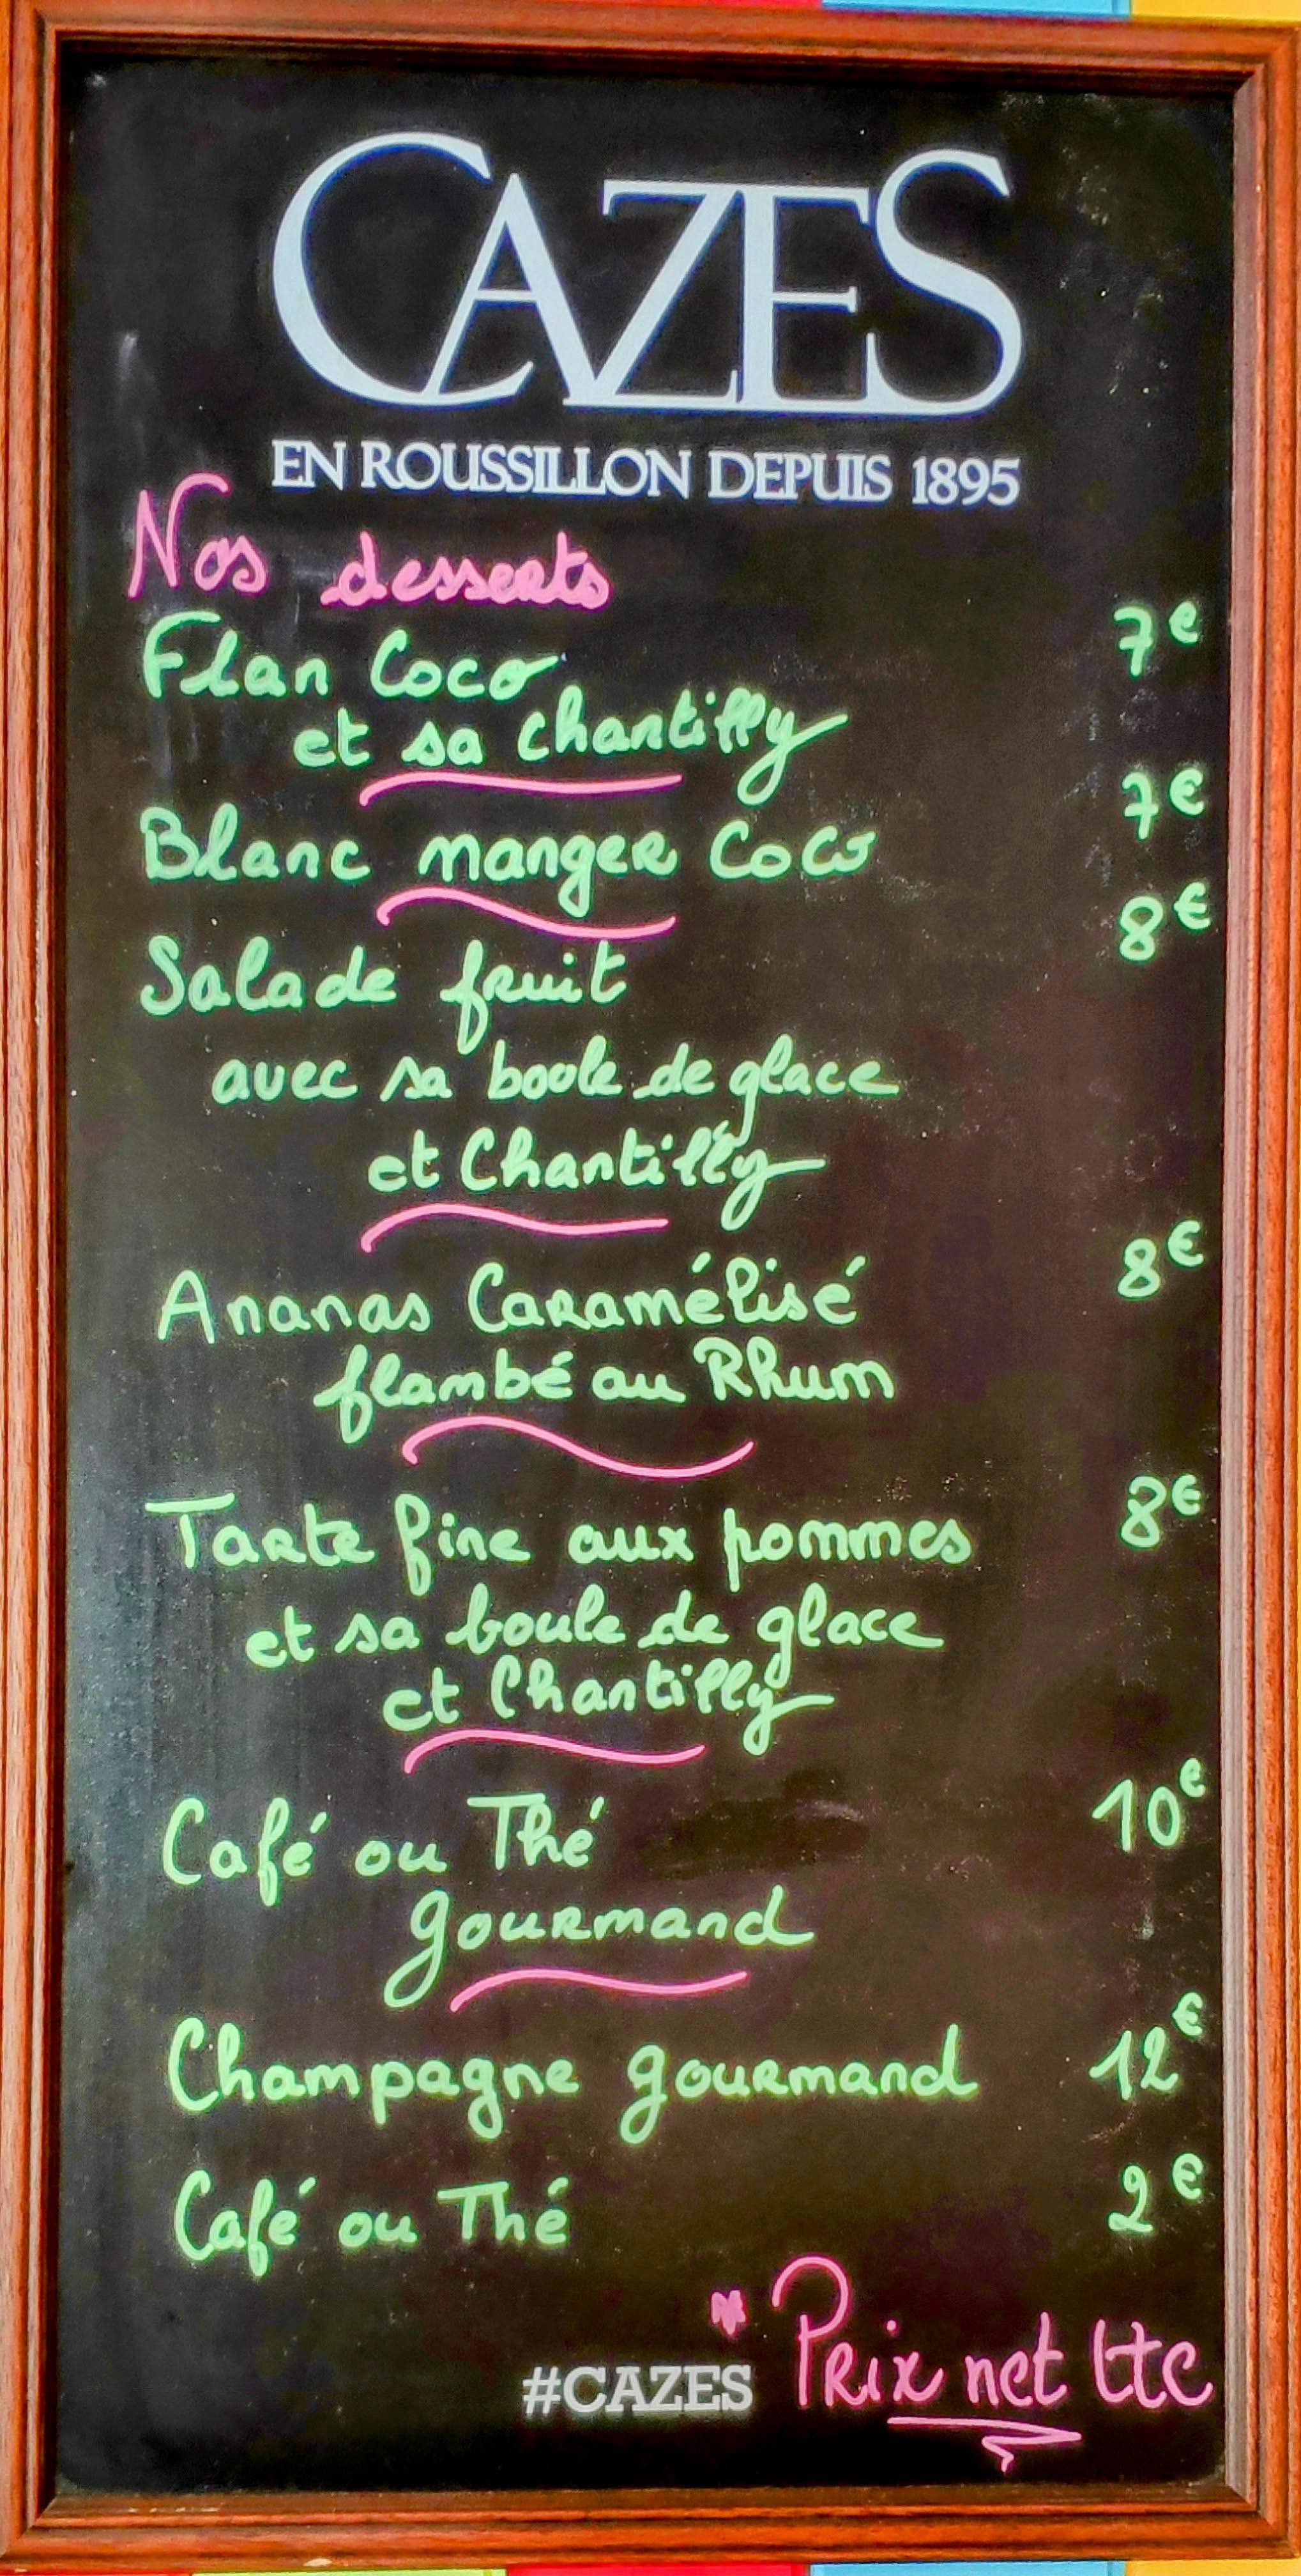 CAZES
EN ROUSSILLON DEPUIS 1895
Nos desserts
Flan Coco 7€
et sa Chantilly
Blanc manger Coco 7€
Salade fruit 8€
avec sa boule de glace
et Chantilly
Ananas Caramélisé 8€
flambé au Rhum
Tarte fine aux pommes 8€
et sa boule de glace
et Chantilly
Café ou Thé 10€
gourmand
Champagne gourmand 12€
Café ou Thé 2€
* Prix net ttc
#CAZES